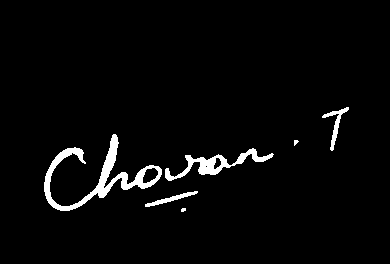 Chouran . T